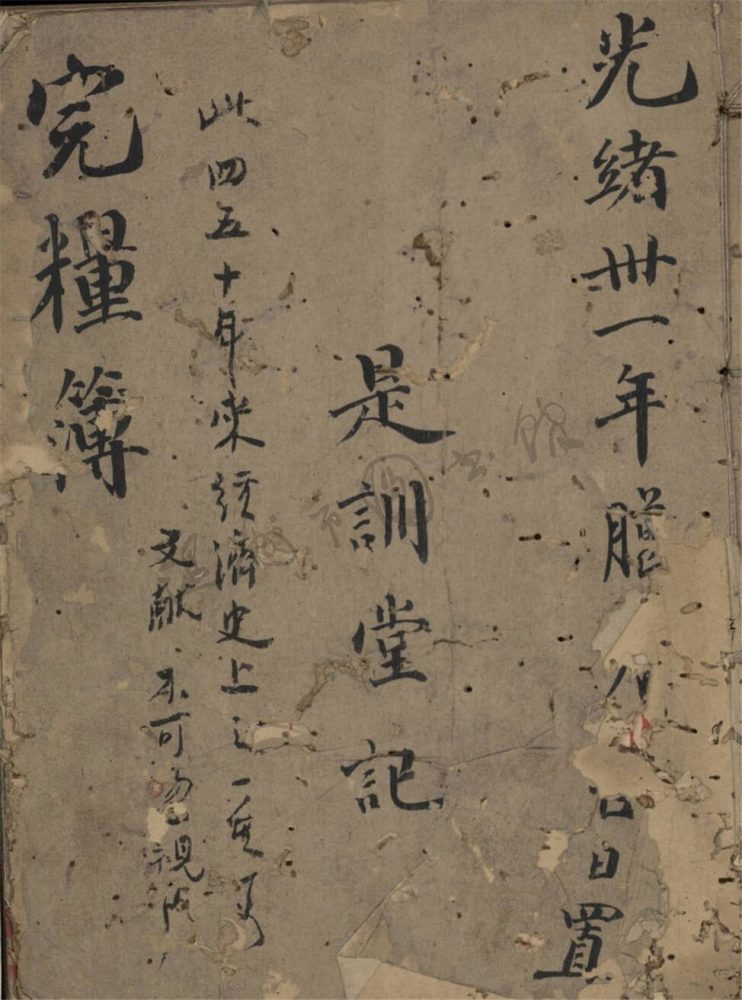 光緒卅一年臘月 日置
是訓堂記
此四五十年來經濟史上之一重要
文献不可忽視
完糧簿